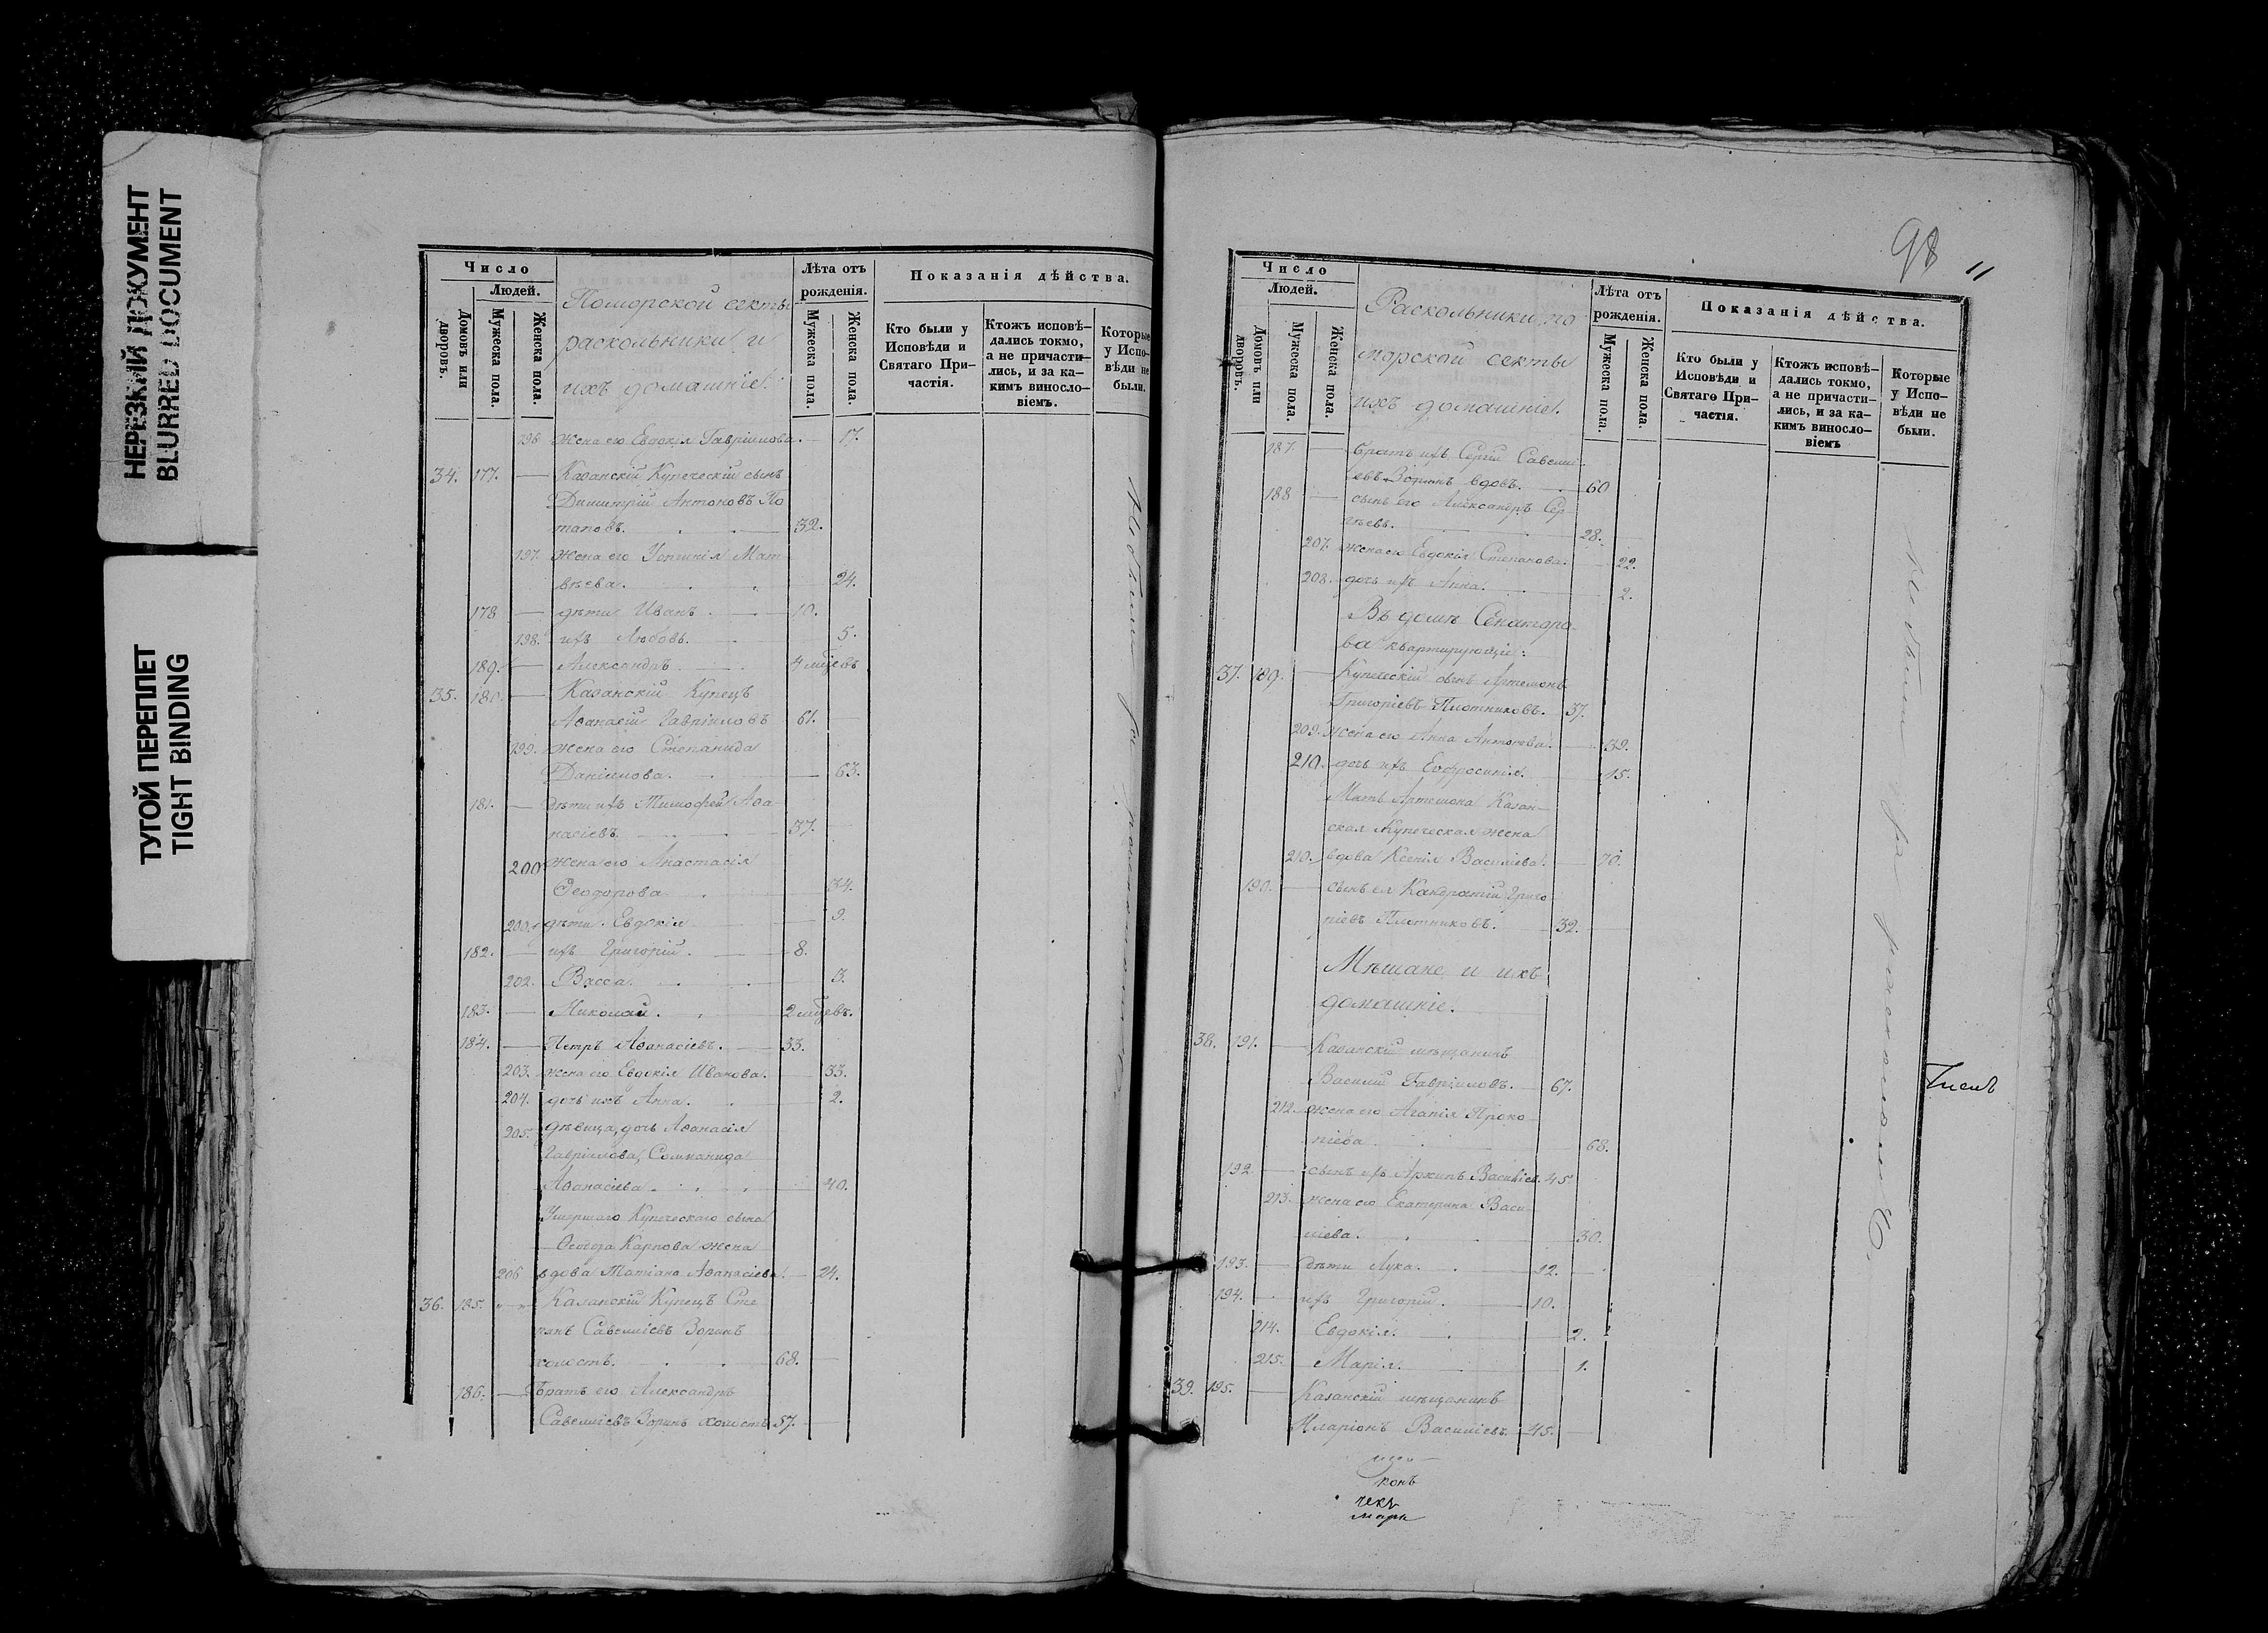 НЕРЕЗКИЙ ДОКУМЕНТ
BLURRED DOCUMENT
ТУГОЙ ПЕРЕПЛЕТ
TIGHT BINDING
Число
Людей.
Домовъ или дворовъ.
Мужеска пола.
Женска пола.
Поморской секты
раскольники и
ихъ домашніе.
Лѣта отъ рожденія.
Мужеска пола.
Женска пола.
Показанія дѣйства.
Кто были у Исповѣди и Святаго Причастія.
Ктожъ исповѣдались токмо, а не причастились, и за какимъ винословіемъ.
Которые у Исповѣди не были.
196 жена его Евдокія Гавріилова. 17.
34. 177. Казанскій Купеческій сынъ
Димитрій Антоновъ По
таповъ. 32.
197. жена его Устинія Мат
вѣева. 24.
178 дѣти Иванъ 10.
198. ихъ Любовь. 5.
189. Александръ 4 мцсвъ
35. 180. Казанскій Купецъ
Аѳанасій Гавріиловъ 61.
199. жена его Степанида
Даніилова. 63.
181. дѣти ихъ Тимофей Аѳа
насіевъ 37.
200 жена его Анастасія
Ѳеодорова 34.
200. дѣти. Евдокія 9.
182. ихъ Григорій. 8.
202. Васса. 3.
183. Николай. 2 мцсвъ.
184. Петръ Аѳанасіевъ. 33.
203. жена его Евдокія Иванова. 33.
204. дочь ихъ Анна. 2.
205. дѣвица, дочь Аѳанасія
Гавріилова, Соломанида
Аѳанасіева 40.
Умершаго Купеческаго сына
Ѳеодора Карпова жена
206 вдова Татіана Аѳанасіева. 24.
36. 185. Казанскій Купецъ Сте
панъ Савеліевъ Зоринъ
холостъ. 68.
186. Братъ его Александръ
Савеліевъ Зоринъ холостъ 57.
98
11
Число
Людей.
Домовъ или дворовъ.
Мужеска пола.
Женска пола.
Раскольники по
морской секты
ихъ домашніе.
Лѣта отъ рожденія.
Мужеска пола.
Женска пола.
Показанія дѣйства.
Кто были у Исповѣди и Святаго Причастія.
Ктожъ исповѣдались токмо, а не причастились, и за какимъ винословіемъ
Которые у Исповѣди не были.
187. Братъ ихъ Сергій Савелі
евъ Зоринъ вдовъ. 60
188 сынъ его Александръ Сер
гѣевъ. 28.
207. жена его Евдокія Степанова. 22.
208. дочь ихъ Анна. 2.
Въ домѣ
квартирующіе:
37. 189. Купеческій сынъ Артемонъ
Григоріевъ Плотниковъ. 37.
209. жена его Анна Антонова. 39.
210. дочь ихъ Евфросинія. 15.
Мать Артемона Казан
ская Купеческая жена
210. вдова Ксенія Василіева. 70.
190. сынъ ея Кандратій Григо
ріевъ Плотниковъ. 32.
Мѣщане и ихъ
домашніе.
38. 191. Казанскій мѣщанинъ
Василій Гавріиловъ. 67.
212. жена его Агапія Проко
піева 68.
192 сынъ ихъ Архипъ Василіев. 45.
213. жена его Екатерина Васи
ліева. 30.
193. дѣти Лука. 12.
194. ихъ Григорій. 10.
214. Евдокія. 2.
215. Марія. 1.
39. 195. Казанскій мѣщанинъ
Иларіонъ Василіевъ. 45.
Не были за расколомъ.
конъ